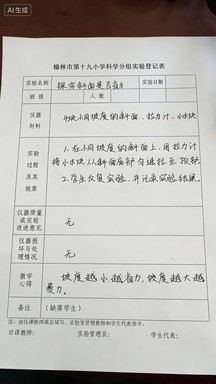 AI生成
榆林市第十九小学科学分组实验登记表
实验名称 探究斜面是否省力 实验日期
班 级 人 数
仪器
材料
4块不同坡度的斜面,拉力计,小木块
实验
过程
及其
效果
1.在不同坡度的斜面上,用拉力计
将小木块从斜面底部匀速拉至顶部
2.学生反复实验,并记录实验结果。
仪器质量
或实验
改进意见
无
仪器损
坏与处
理情况
无
教学
心得
坡度越小越省力,坡度越大越
费力。
备注 (缺席学生)
注:由任课教师课后填写,实验室管理教师和学生代表签字。
任课教师: 实验管理员: 学生代表: